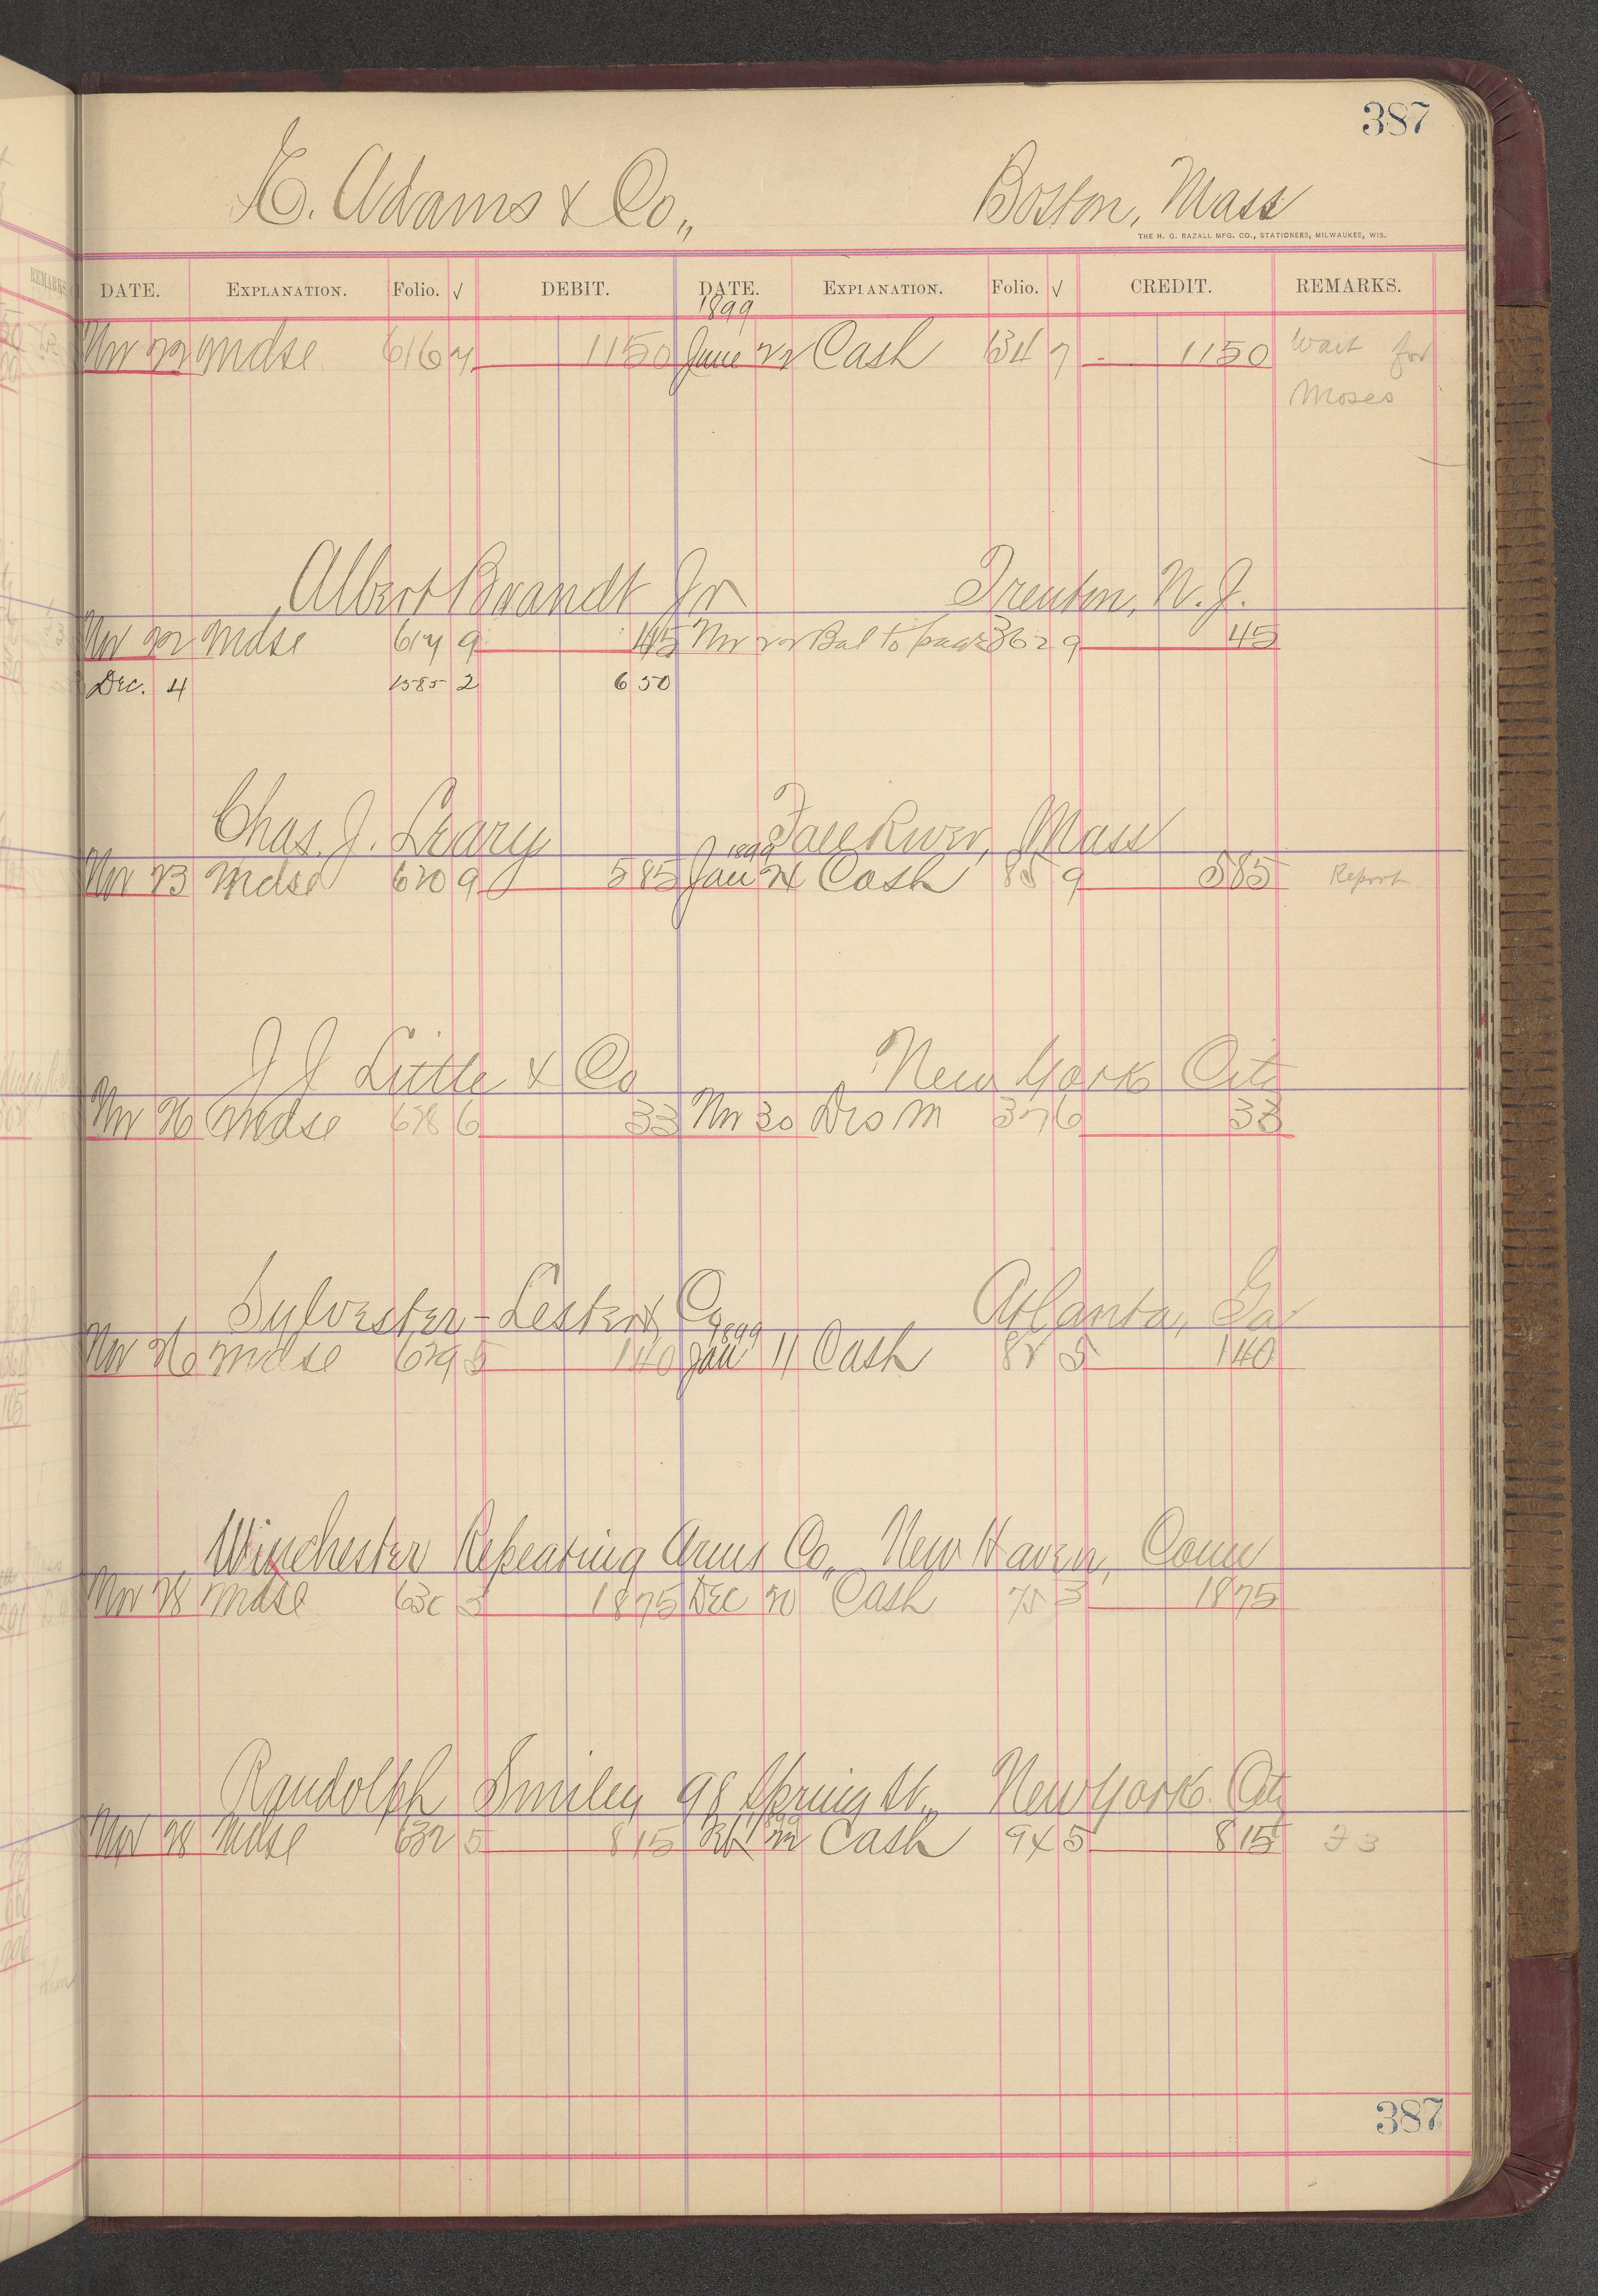 387
E. Adams & Co., Boston, Mass
THE H. G. RAZALL MFG. CO., STATIONERS, MILWAUKEE, WIS.
DATE. EXPLANATION. Folio. √ DEBIT. DATE. EXPLANATION. Folio. √ CREDIT. REMARKS.
1899
Nov 22 Mdse 616 7 11 50 June 22 Cash 134 7 11 50 Wait for
Moses
Albert Brandt Jr Trenton, N. J.
Nov 22 Mdse 617 9 45 Nov 22 Bal to page 362 9 45
Dec. 4 1585 2 6 50
Chas. J. Leary Fall River, Mass
1899
Nov 23 Mdse 620 9 5 85 Jan 24 Cash 85 9 5 85 Report
J J Little & Co New York City
Nov 26 Mdse 628 6 33 Nov 30 Dis M 37 6 33
Sylvester-Lester & Co Atlanta, Ga
1899
Nov 26 Mdse 629 5 1 40 Jan 11 Cash 82 5 1 40
Winchester Repeating Arms Co., New Haven, Conn
Nov 28 Mdse 630 3 18 75 Dec 20 Cash 75 3 18 75
Randolph Smiley 98 Spring St., New York. City
Nov 28 Mdse 632 5 8 15 Cash 94 5 8 15
387